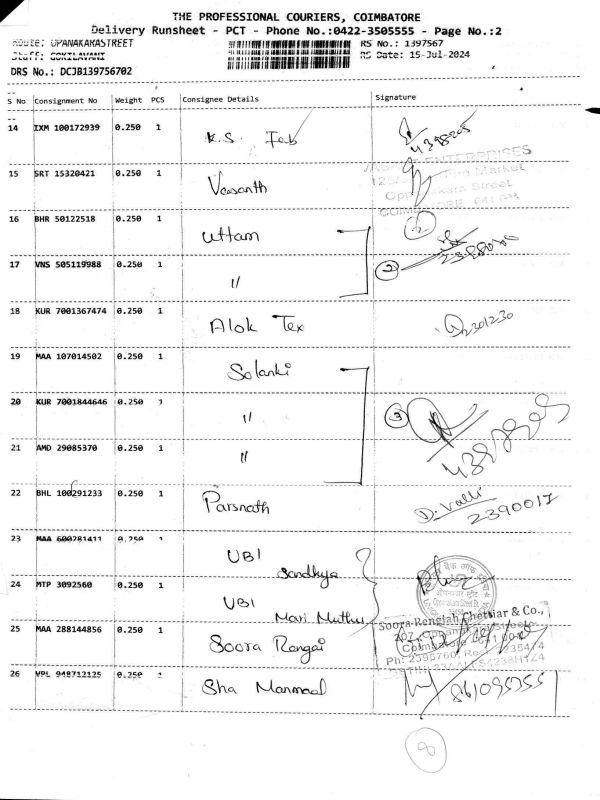 THE PROFESSIONAL COURIERS, COIMBATORE
Delivery Runsheet - PCT - Phone No.:0422-3505555 - Page No.:2
Route: UPANAKARASTREET RS No.: 1397567
Staff: GOKILAVANI RS Date: 15-Jul-2024
DRS No.: DCJB139756702
S No Consignment No Weight PCS Consignee Details Signature
14 IXM 100172939 0.250 1 K.S. Fab
15 SRT 15320421 0.250 1 Vasanth
ENTERPRISES
Market
Street
16 BHR 50122518 0.250 1 Uttam
17 VNS 505119988 0.250 1 " 2
18 KUR 7001367474 0.250 1 Alok Tex 2301230
19 MAA 107014502 0.250 1 Solanki
20 KUR 7001844646 0.250 1 " 3
21 AMD 29085370 0.250 1 "
22 BHL 100291233 0.250 1 Parsnath D. Valli
2390017
23 MAA 600281411 0.250 1 UBI Sandhya
24 MTP 3092560 0.250 1 UBI Mari Muthu
25 MAA 288144856 0.250 1 Soora Rengai Soora Rengiah Chettiar & Co.,
26 VPL 948712125 0.250 Sha Manmaal
8